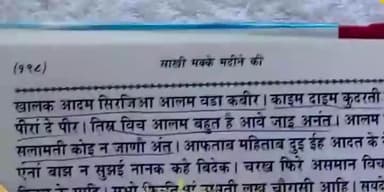 (११८) साखी मक्के मदीने की
खालक आदम सिरजिआ आलम वडा कबीर। काइम दाइम कुदरती
पीरां दे पीर। तिस विच आलम बहुत है आवे जाइ अनंत। आलम
सलामती कोइ न जाणी अंत। आफताब महिताब दुइ ईह आदत के
एनां बाझ न सुझई नानक कहे बिवेक। चरख फिरे असमान विच
चौरासी आदि।